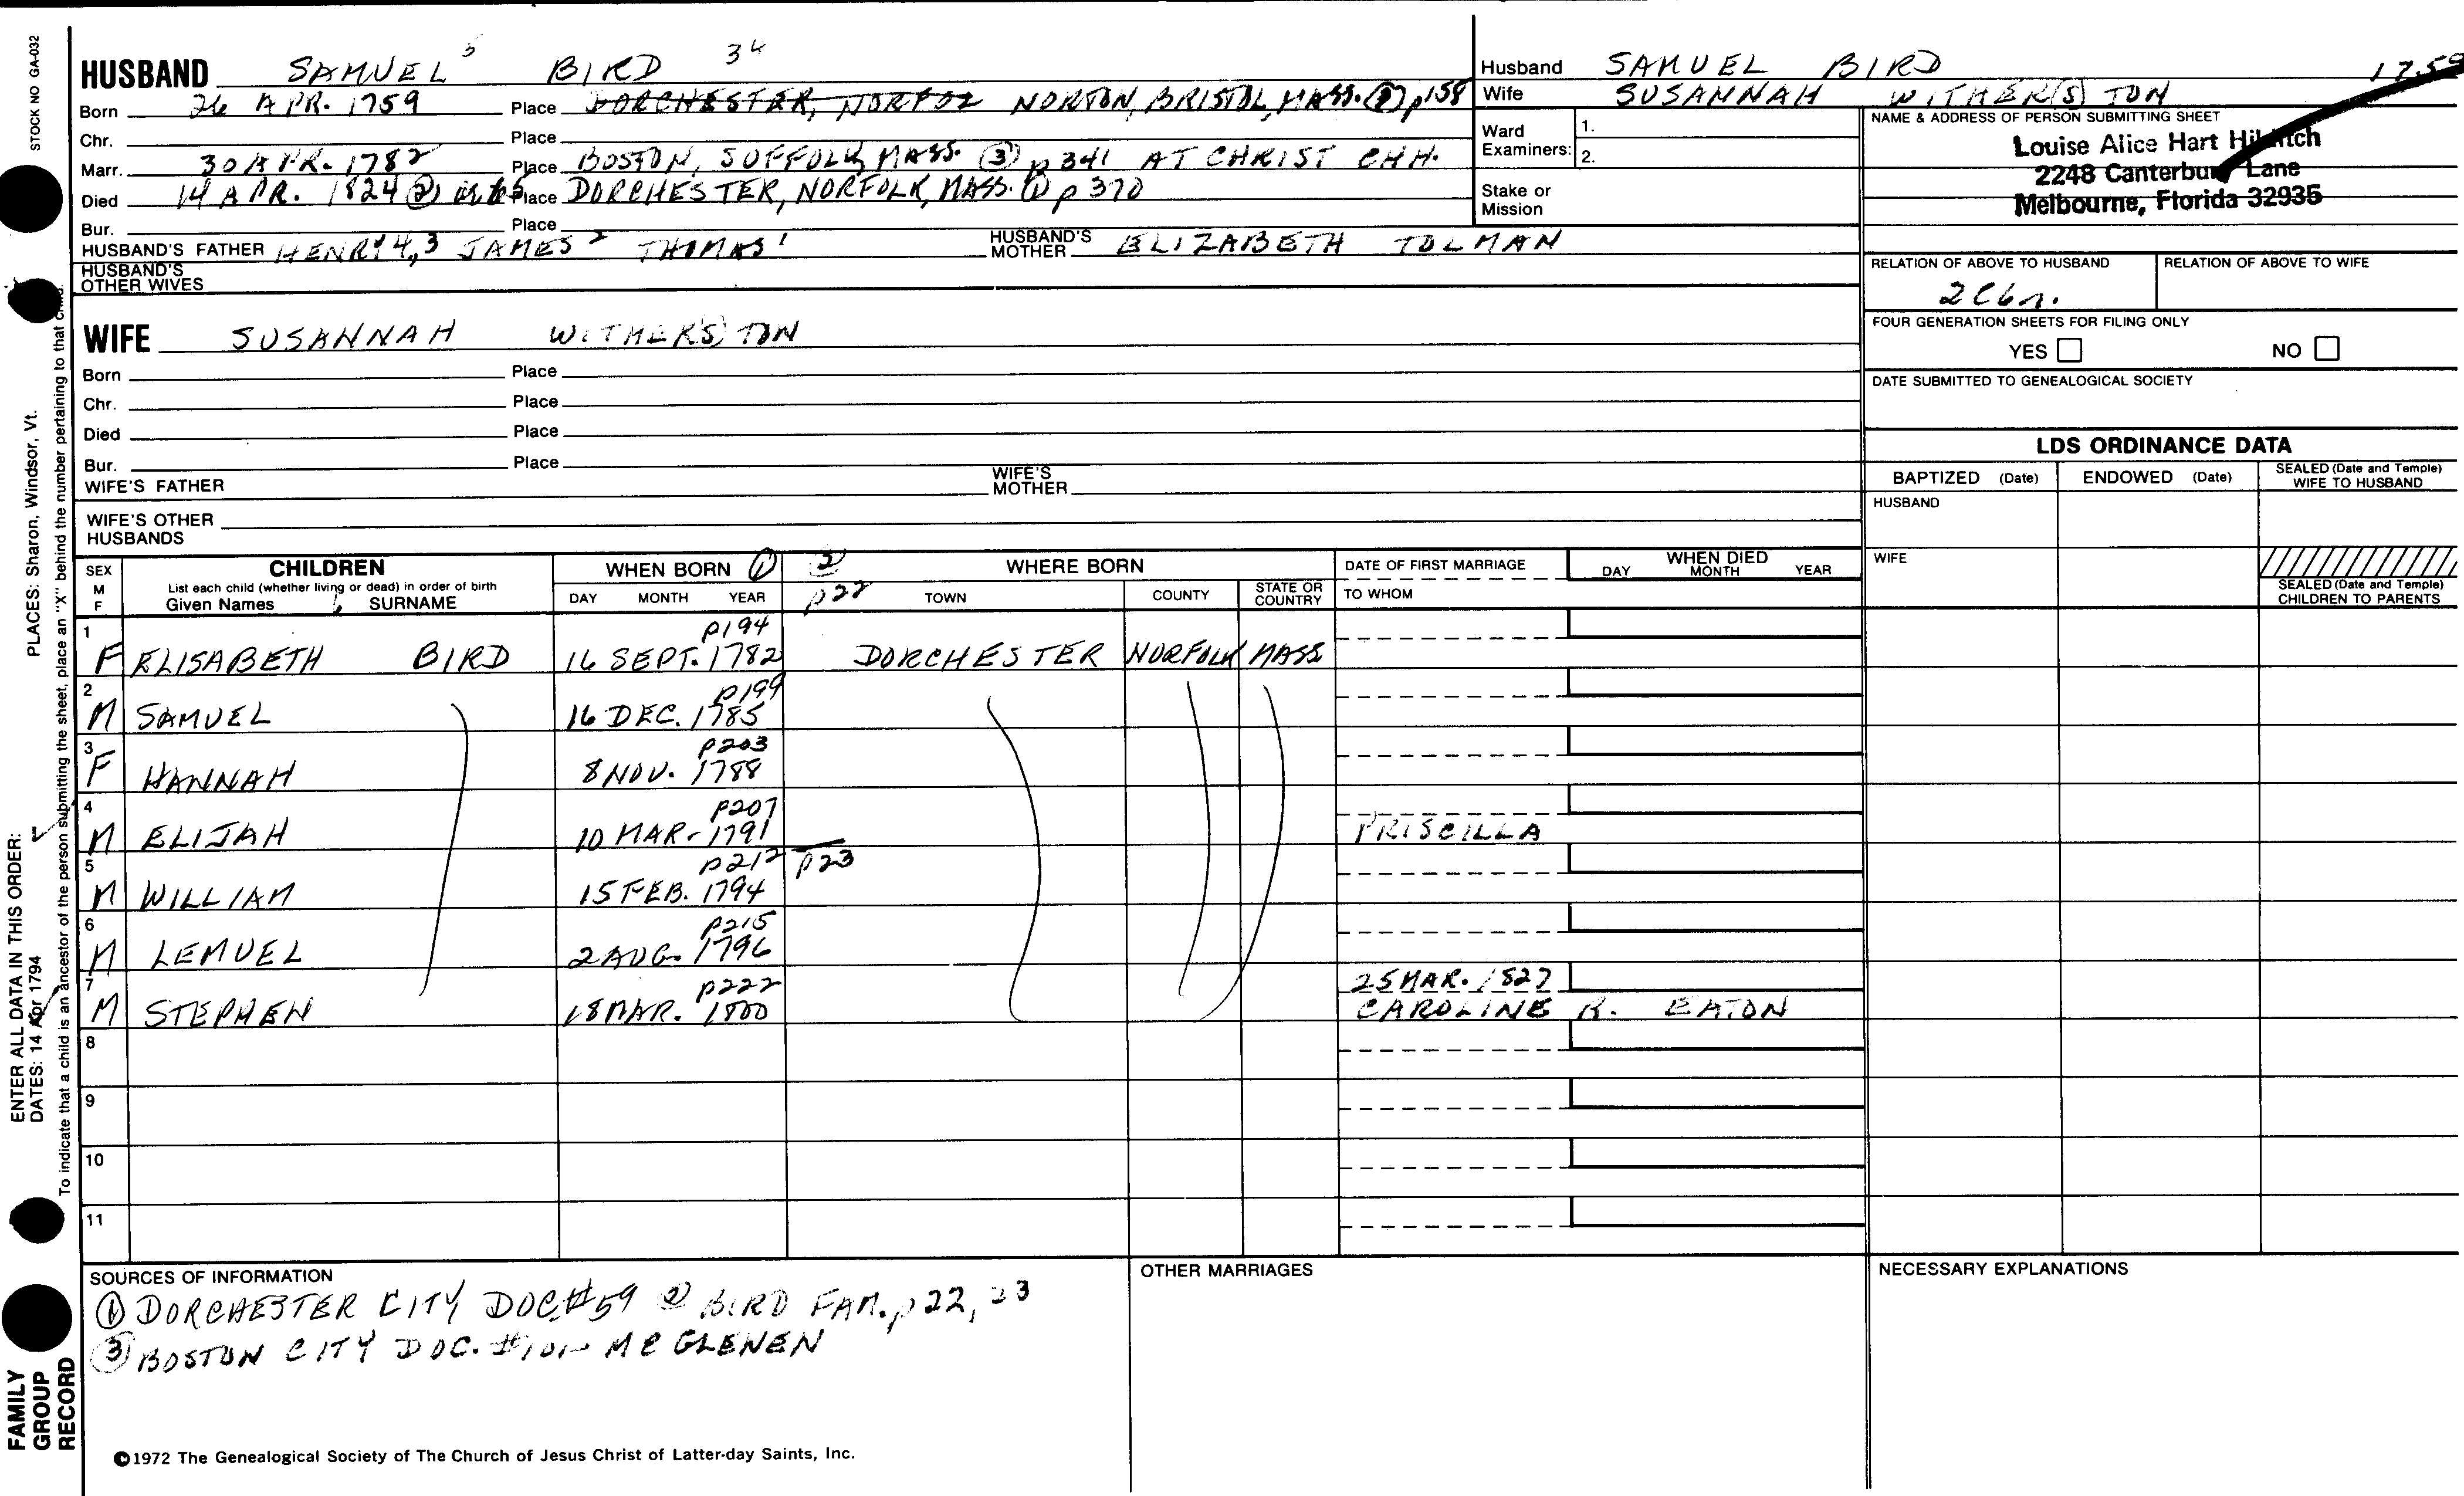 STOCK NO GA-032
HUSBAND SAMUEL 5 BIRD 34
Born 26 APR. 1759 Place DORCHESTER, NORFOL NORTON, BRISTOL, MASS. p158
Chr. Place
Marr. 30 APR. 1782 Place BOSTON, SUFFOLK, MASS. (3) p 341 AT CHRIST CHH.
Died 14 APR. 1824 (2) Place DORCHESTER, NORFOLK, MASS. (1) p 370
Bur. Place
HUSBAND'S FATHER HENRY 4,3 JAMES 2 THOMAS 1 HUSBAND'S MOTHER ELIZABETH TOLMAN
HUSBAND'S OTHER WIVES
Husband SAMUEL BIRD 1759
Wife SUSANNAH WITHER(S)TON
Ward Examiners: 1.
2.
Stake or Mission
NAME & ADDRESS OF PERSON SUBMITTING SHEET
Louise Alice Hart
2248 Canterbury Lane
Melbourne, Florida 32935
RELATION OF ABOVE TO HUSBAND RELATION OF ABOVE TO WIFE
2C6r.
FOUR GENERATION SHEETS FOR FILING ONLY
YES NO
DATE SUBMITTED TO GENEALOGICAL SOCIETY
WIFE SUSANNAH WITHER(S)TON
Born Place
Chr. Place
Died Place
Bur. Place
WIFE'S FATHER WIFE'S MOTHER
WIFE'S OTHER HUSBANDS
LDS ORDINANCE DATA
BAPTIZED (Date) ENDOWED (Date) SEALED (Date and Temple) WIFE TO HUSBAND
HUSBAND
WIFE
SEALED (Date and Temple) CHILDREN TO PARENTS
SEX M F CHILDREN List each child (whether living or dead) in order of birth Given Names SURNAME
WHEN BORN (1) DAY MONTH YEAR
(2) p22 WHERE BORN TOWN COUNTY STATE OR COUNTRY
DATE OF FIRST MARRIAGE TO WHOM
WHEN DIED DAY MONTH YEAR
1 p194
F ELISABETH BIRD 16 SEPT. 1782 DORCHESTER NORFOLK MASS
2 p199
M SAMUEL 16 DEC. 1785
3 p203
F HANNAH 8 NOV. 1788
4 p207
M ELIJAH 10 MAR. 1791 PRISCILLA
5 p212 p23
M WILLIAM 15 FEB. 1794
6 p215
M LEMUEL 2 AUG. 1796
7 p222 25 MAR. 1827
M STEPHEN 18 MAR. 1800 CAROLINE R. EATON
8
9
10
11
SOURCES OF INFORMATION
(1) DORCHESTER CITY DOC. #59 (2) BIRD FAM. p 22, 23
(3) BOSTON CITY DOC. #101 McGLENEN
OTHER MARRIAGES
NECESSARY EXPLANATIONS
©1972 The Genealogical Society of The Church of Jesus Christ of Latter-day Saints, Inc.
FAMILY GROUP RECORD
ENTER ALL DATA IN THIS ORDER:
DATES: 14 Apr 1794
PLACES: Sharon, Windsor, Vt.
To indicate that a child is an ancestor of the person submitting the sheet, place an "X" behind the number pertaining to that child.